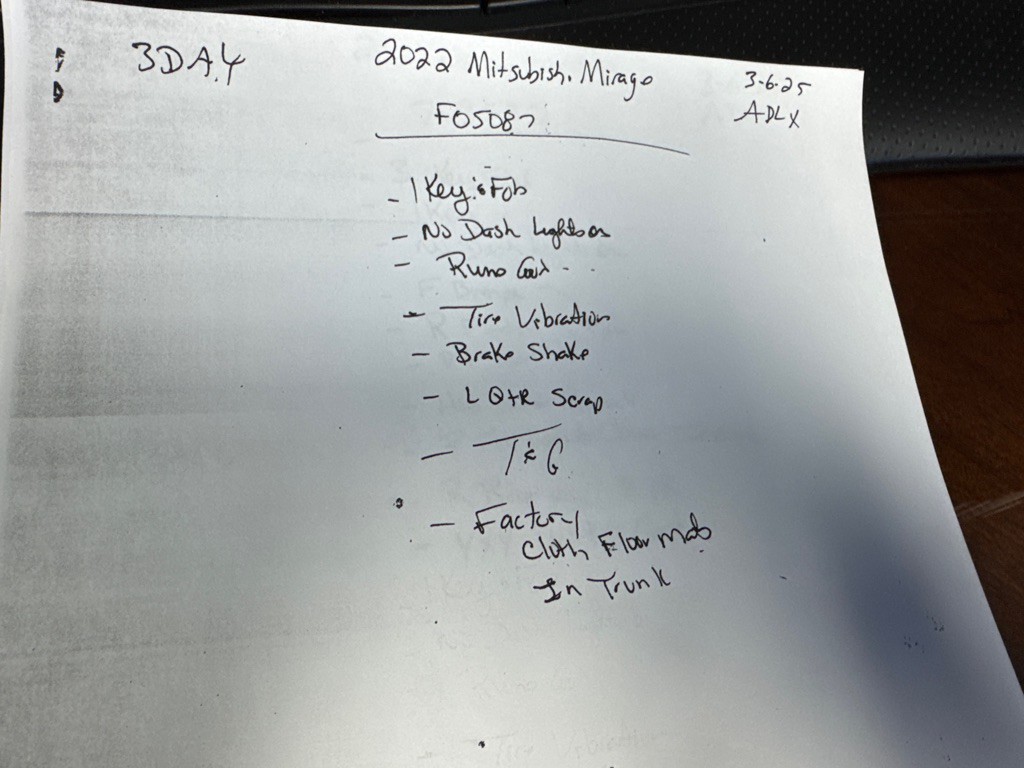 3DA.4
2022 Mitsubish. Mirage
3-6-25
ADLX
F05087
- 1 Key & Fob
- No Dash Lights on
- Runs Good
- Tire Vibration
- Brake Shake
- L QTR Scrap
- T & G
- Factory
Cloth Floor mats
In Trunk